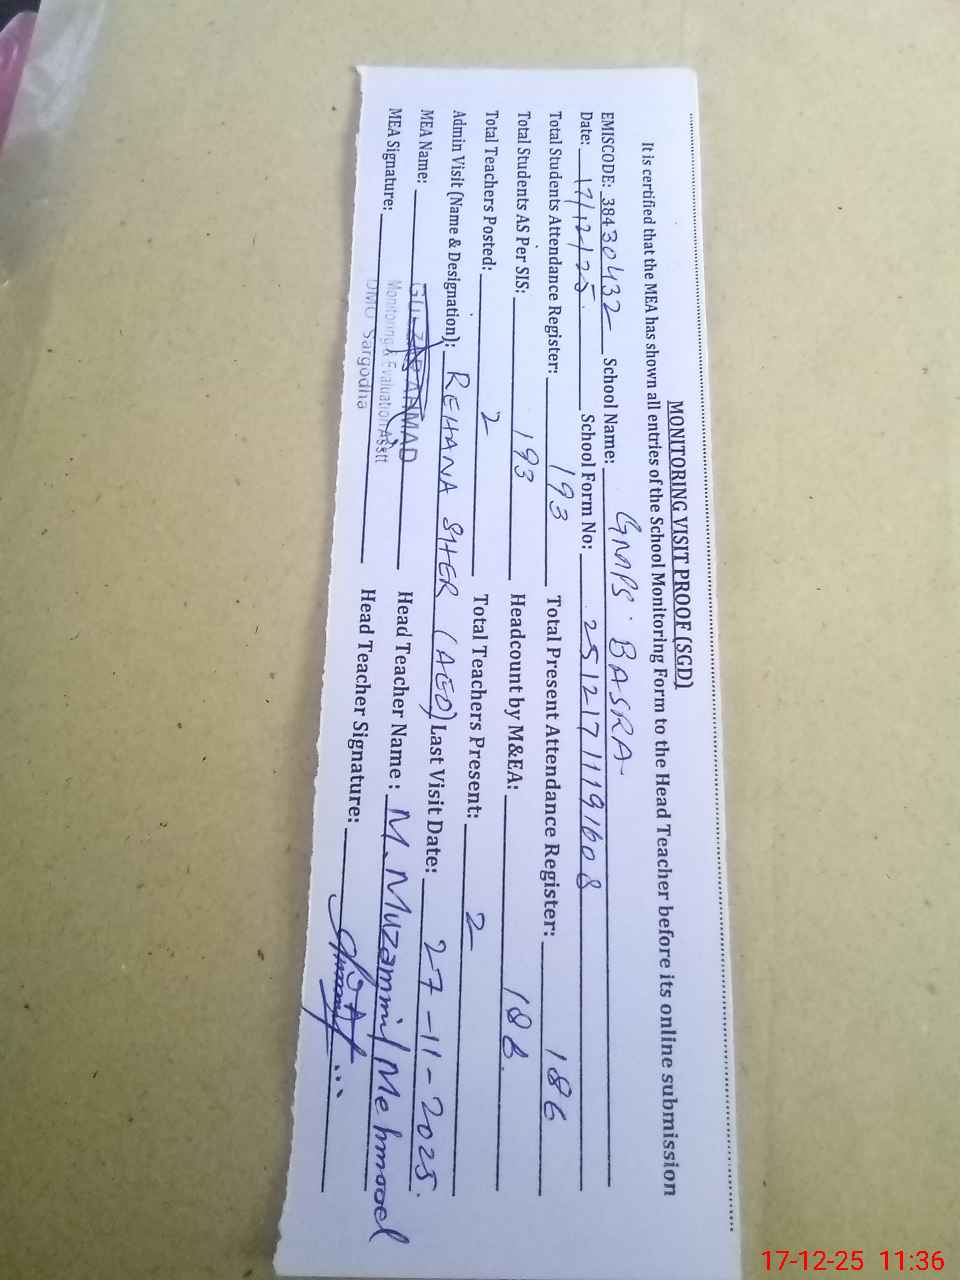 MONITORING VISIT PROOF (SGD)
It is certified that the MEA has shown all entries of the School Monitoring Form to the Head Teacher before its online submission
EMISCODE: 38430432 School Name: GMPS. BASRA
Date: 17/12/25. School Form No: 25121711191608
Total Students Attendance Register: 193 Total Present Attendance Register: 186
Total Students AS Per SIS: 193 Headcount by M&EA: 186.
Total Teachers Posted: 2 Total Teachers Present: 2
Admin Visit (Name & Designation): REHANA SHER (AEO) Last Visit Date: 27-11-2025.
MEA Name: GULZAR AHMAD Head Teacher Name: M. Muzammil Mehmood
Monitoring & Evaluation Asstt
MEA Signature: Head Teacher Signature:
DMO Sargodha
17-12-25 11:36